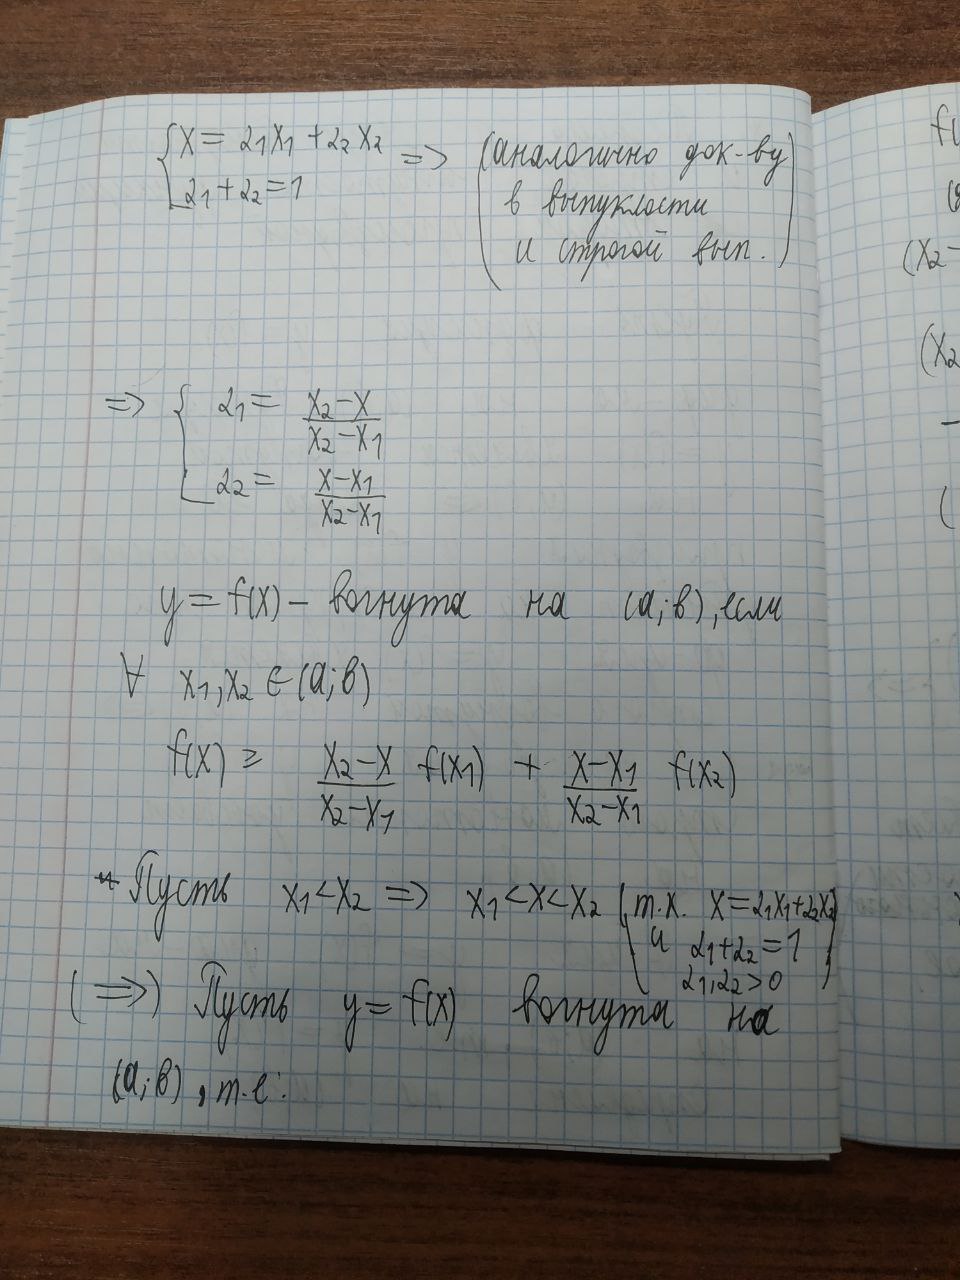 {x = α₁x₁ + α₂x₂
α₁ + α₂ = 1
=> (аналогично док-ву
в выпуклости
и строгой вып.)
=> {α₁ = (x₂-x)/(x₂-x₁)
α₂ = (x-x₁)/(x₂-x₁)
y = f(x) – вогнута на (a;b), если
∀ x₁, x₂ ∈ (a;b)
f(x) ≥ (x₂-x)/(x₂-x₁) f(x₁) + (x-x₁)/(x₂-x₁) f(x₂)
Пусть x₁<x₂ => x₁<x<x₂ (т.к. x=α₁x₁+α₂x₂
и α₁+α₂=1
α₁;α₂>0)
(=>) Пусть y = f(x) вогнута на
(a;b), т.е:
(x₂-
(x₂
-
(